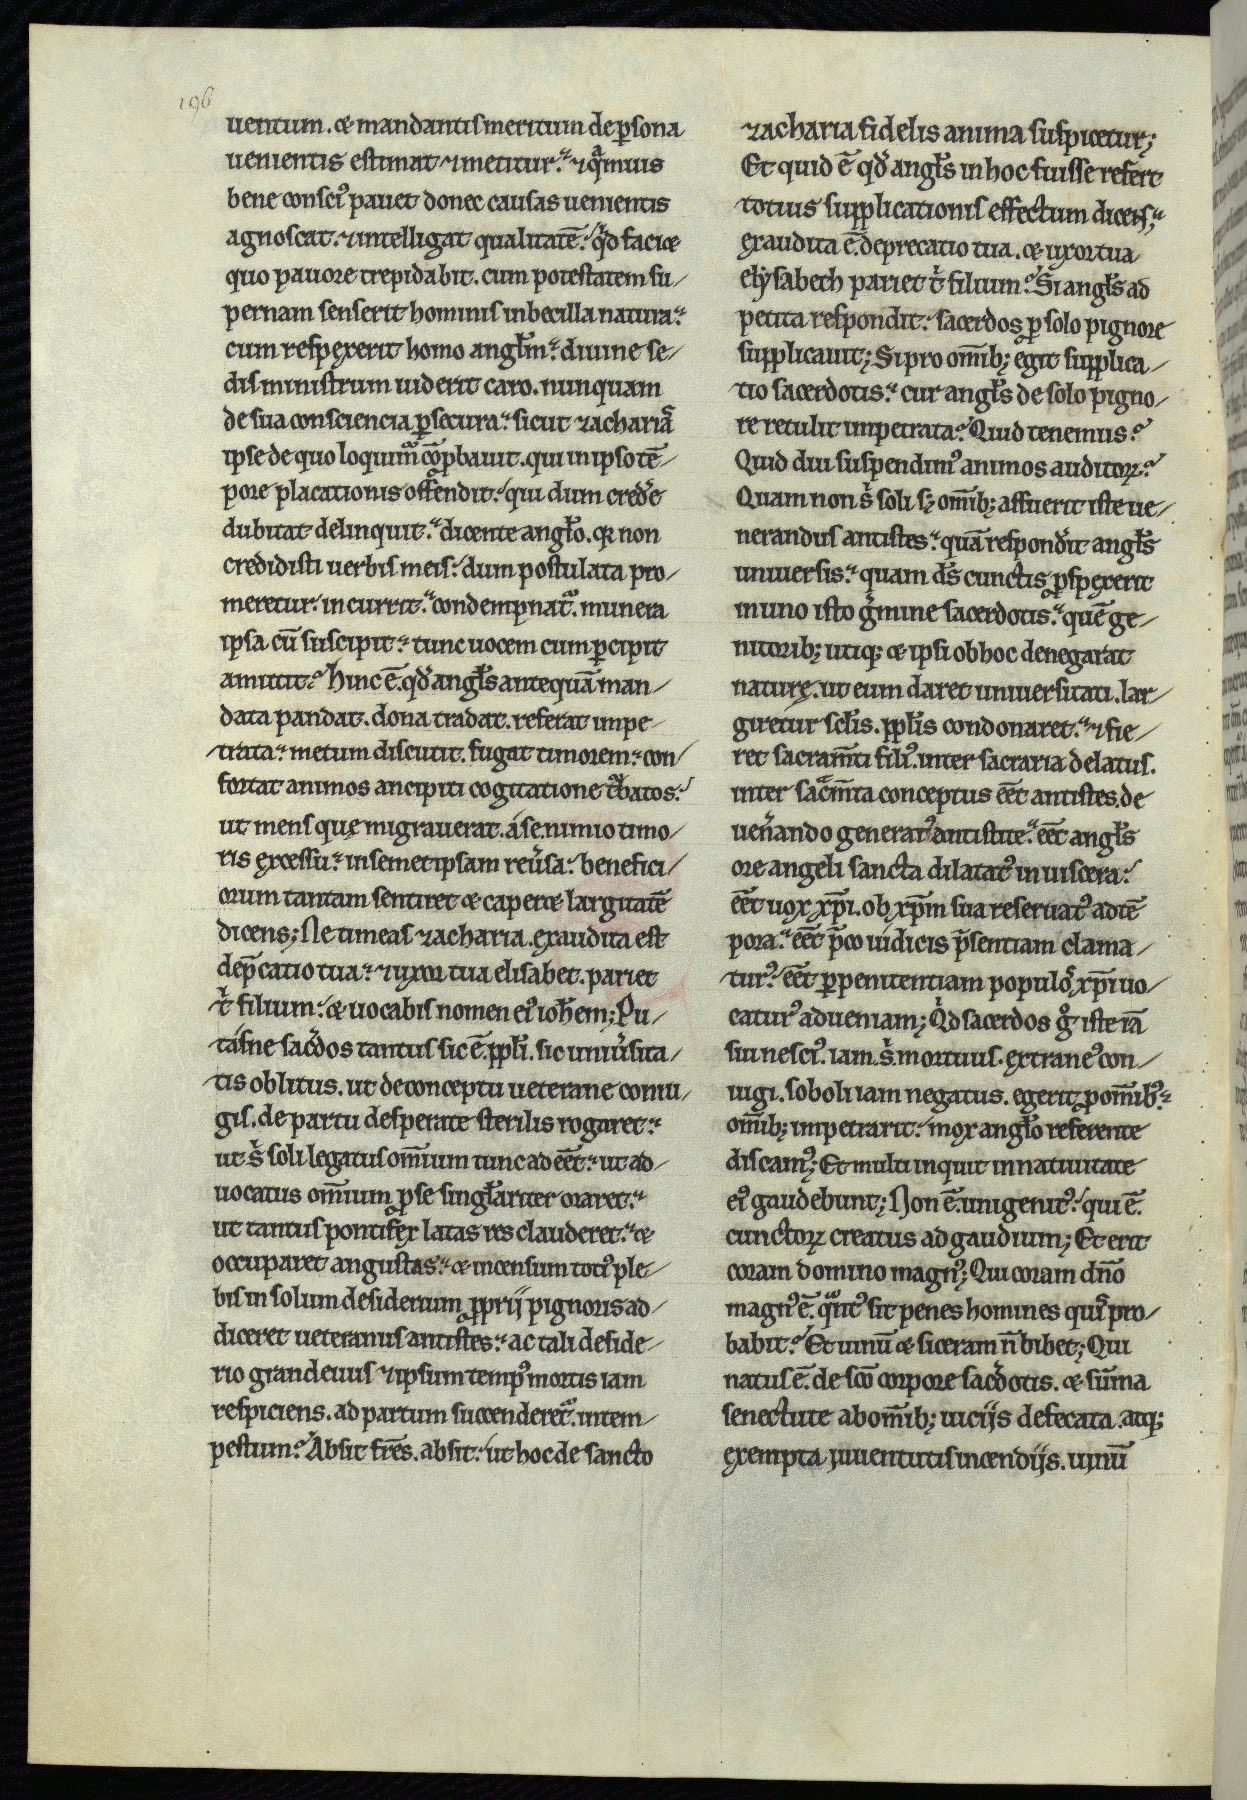 196
uentum. & mandantis meritum de ꝑsona
uenientis estimat ⁊ metitur. ⁊ qͣmuis
bene consciꝰ pauet donec causas uenientis
agnoscat. ⁊ intelligat qualitatē. qͥd faciæ
quo pauore trepidabit. cum potestatem su-
pernam senserit hominis inbecilla natura.
cum respexerit homo angl̄m. diuine se-
dis ministrum uiderit caro. nunquam
de sua consciencia ꝑ secura. sicut zachariā
ipse de quo loquim̄ cōpbauit. qui in ipso tē-
pore placationis offendit. qui dum credͤe
dubitat delinquit. dicente angl̄o. qꝛ non
credidisti uerbis meis. dum postulata pro-
meretur. incurrit. condempnatᷣ. munera
ipsa cū suscipit. tunc uocem cum ꝑcipit
amittit. Hinc ē. qđ angl̄s antequā man-
data pandat. dona tradat. referat impe-
trata. metum discutit. fugat timorem. con-
fortat animos ancipiti cogitatione tͥbatos.
ut mens quę migrauerat. a se nimio timo-
ris excessu. in semet ipsam reuͥsa. benefici-
orum tantam sentiret & caperæ largitatē
dicens; Ne timeas zacharia. exaudita est
dep̄catio tua. ⁊ uxor tua elisabet. pariet
tͥ filium. & uocabis nomen eiꝰ ioh̄em; Pu-
tasne sacͥdos tantus sic ē ppl̄i. sic uniuͥsita-
tis oblitus. ut de conceptu ueterane coniu-
gis. de partu desperate sterilis rogaret.
ut sͥ soli legatus om̄ium tunc adēēt. ut ad-
uocatus omīum ꝓ se singl̄ariter oraret.
ut tantus pontifex latas res clauderet. &
occuparet angustas. & incensum totiꝰ ple-
bis in solum desiderium ꝓprij pignoris ad-
diceret ueteranus antistes. ac tali deside-
rio grandeuus ⁊ ipsum tempꝰ mortis iam
respiciens. ad partum succenderetᷣ. intem-
pestum. Absit fr̄es. absit. ut hoc de sancto
zacharia fidelis anima suspicetur;
Et quid ē qđ angl̄s in hoc fuisse refert
totius supplicationis effectum dicens;
exaudita ē. deprecatio tua. & uxor tua
elysabeth pariet tͥ filium. Si angl̄s ad
petita respondit. sacerdos ꝓ solo pignore
supplicauit; Si pro om̄ibꝫ egit supplica-
tio sacerdotis. cur angl̄s de solo pigno-
re retulit impetrata. Quid tenemus.
Quid diu suspendimꝰ animos auditoꝝ.
Quam non sͥ soli sꝫ om̄ibꝫ affuerit iste ue-
nerandus antistes. quā respondͥit angl̄s
uniuersis. quam d̄s cunctis ꝓspexerit
in uno isto gͥmine sacerdotis. quē ge-
nitoribꝫ utiqꝫ & ipsi ob hoc denegarat
naturę. ut eum daret uniuersitati. lar-
giretur scl̄is. ppl̄is condonaret. ⁊ fie-
ret sacram̄ti filiꝰ. inter sacraria delatus.
inter sacͣm̄ta conceptus ēēt antistes. de
uenͥando generatꝰ antistite. ēēt angl̄s
ore angeli sancta dilatatꝰ in uiscera.
ēēt uox xp̄i. ob xp̄m sua reseruatꝰ ad tē
pora. ēēt p̄co iudicis p̄sentiam clama-
turꝰ. ēēt ꝑ penitentiam populoͣ xp̄i uo-
caturꝰ ad ueniam; Qͥd sacerdos gͦ iste iā
sui nesciꝰ. iam sͥ mortuus. extraneꝰ con-
iugi. soboli iam negatus. egerit ꝓ om̄ibꝰ.
om̄ibꝫ impetrarit. mox angl̄o referente
discamꝰ; Et multi inquit in natiuitate
eiꝰ gaudebunt; Non ē. unigenitꝰ. qui ē.
cunctoꝝ creatus ad gaudium; Et erit
coram domino magnꝰ; Qui coram dn̄o
magnꝰ ē. qͣntꝰ sit penes homines quiͣ pro-
babit. Et uinū & siceram n̄ bibet; Qui
natus ē. de sc̄o corpore sacͥdotis. & sūma
senectute ab om̄ibꝫ uicijs defecata. atqꝫ
exempta iuuentutis incendijs. uinū